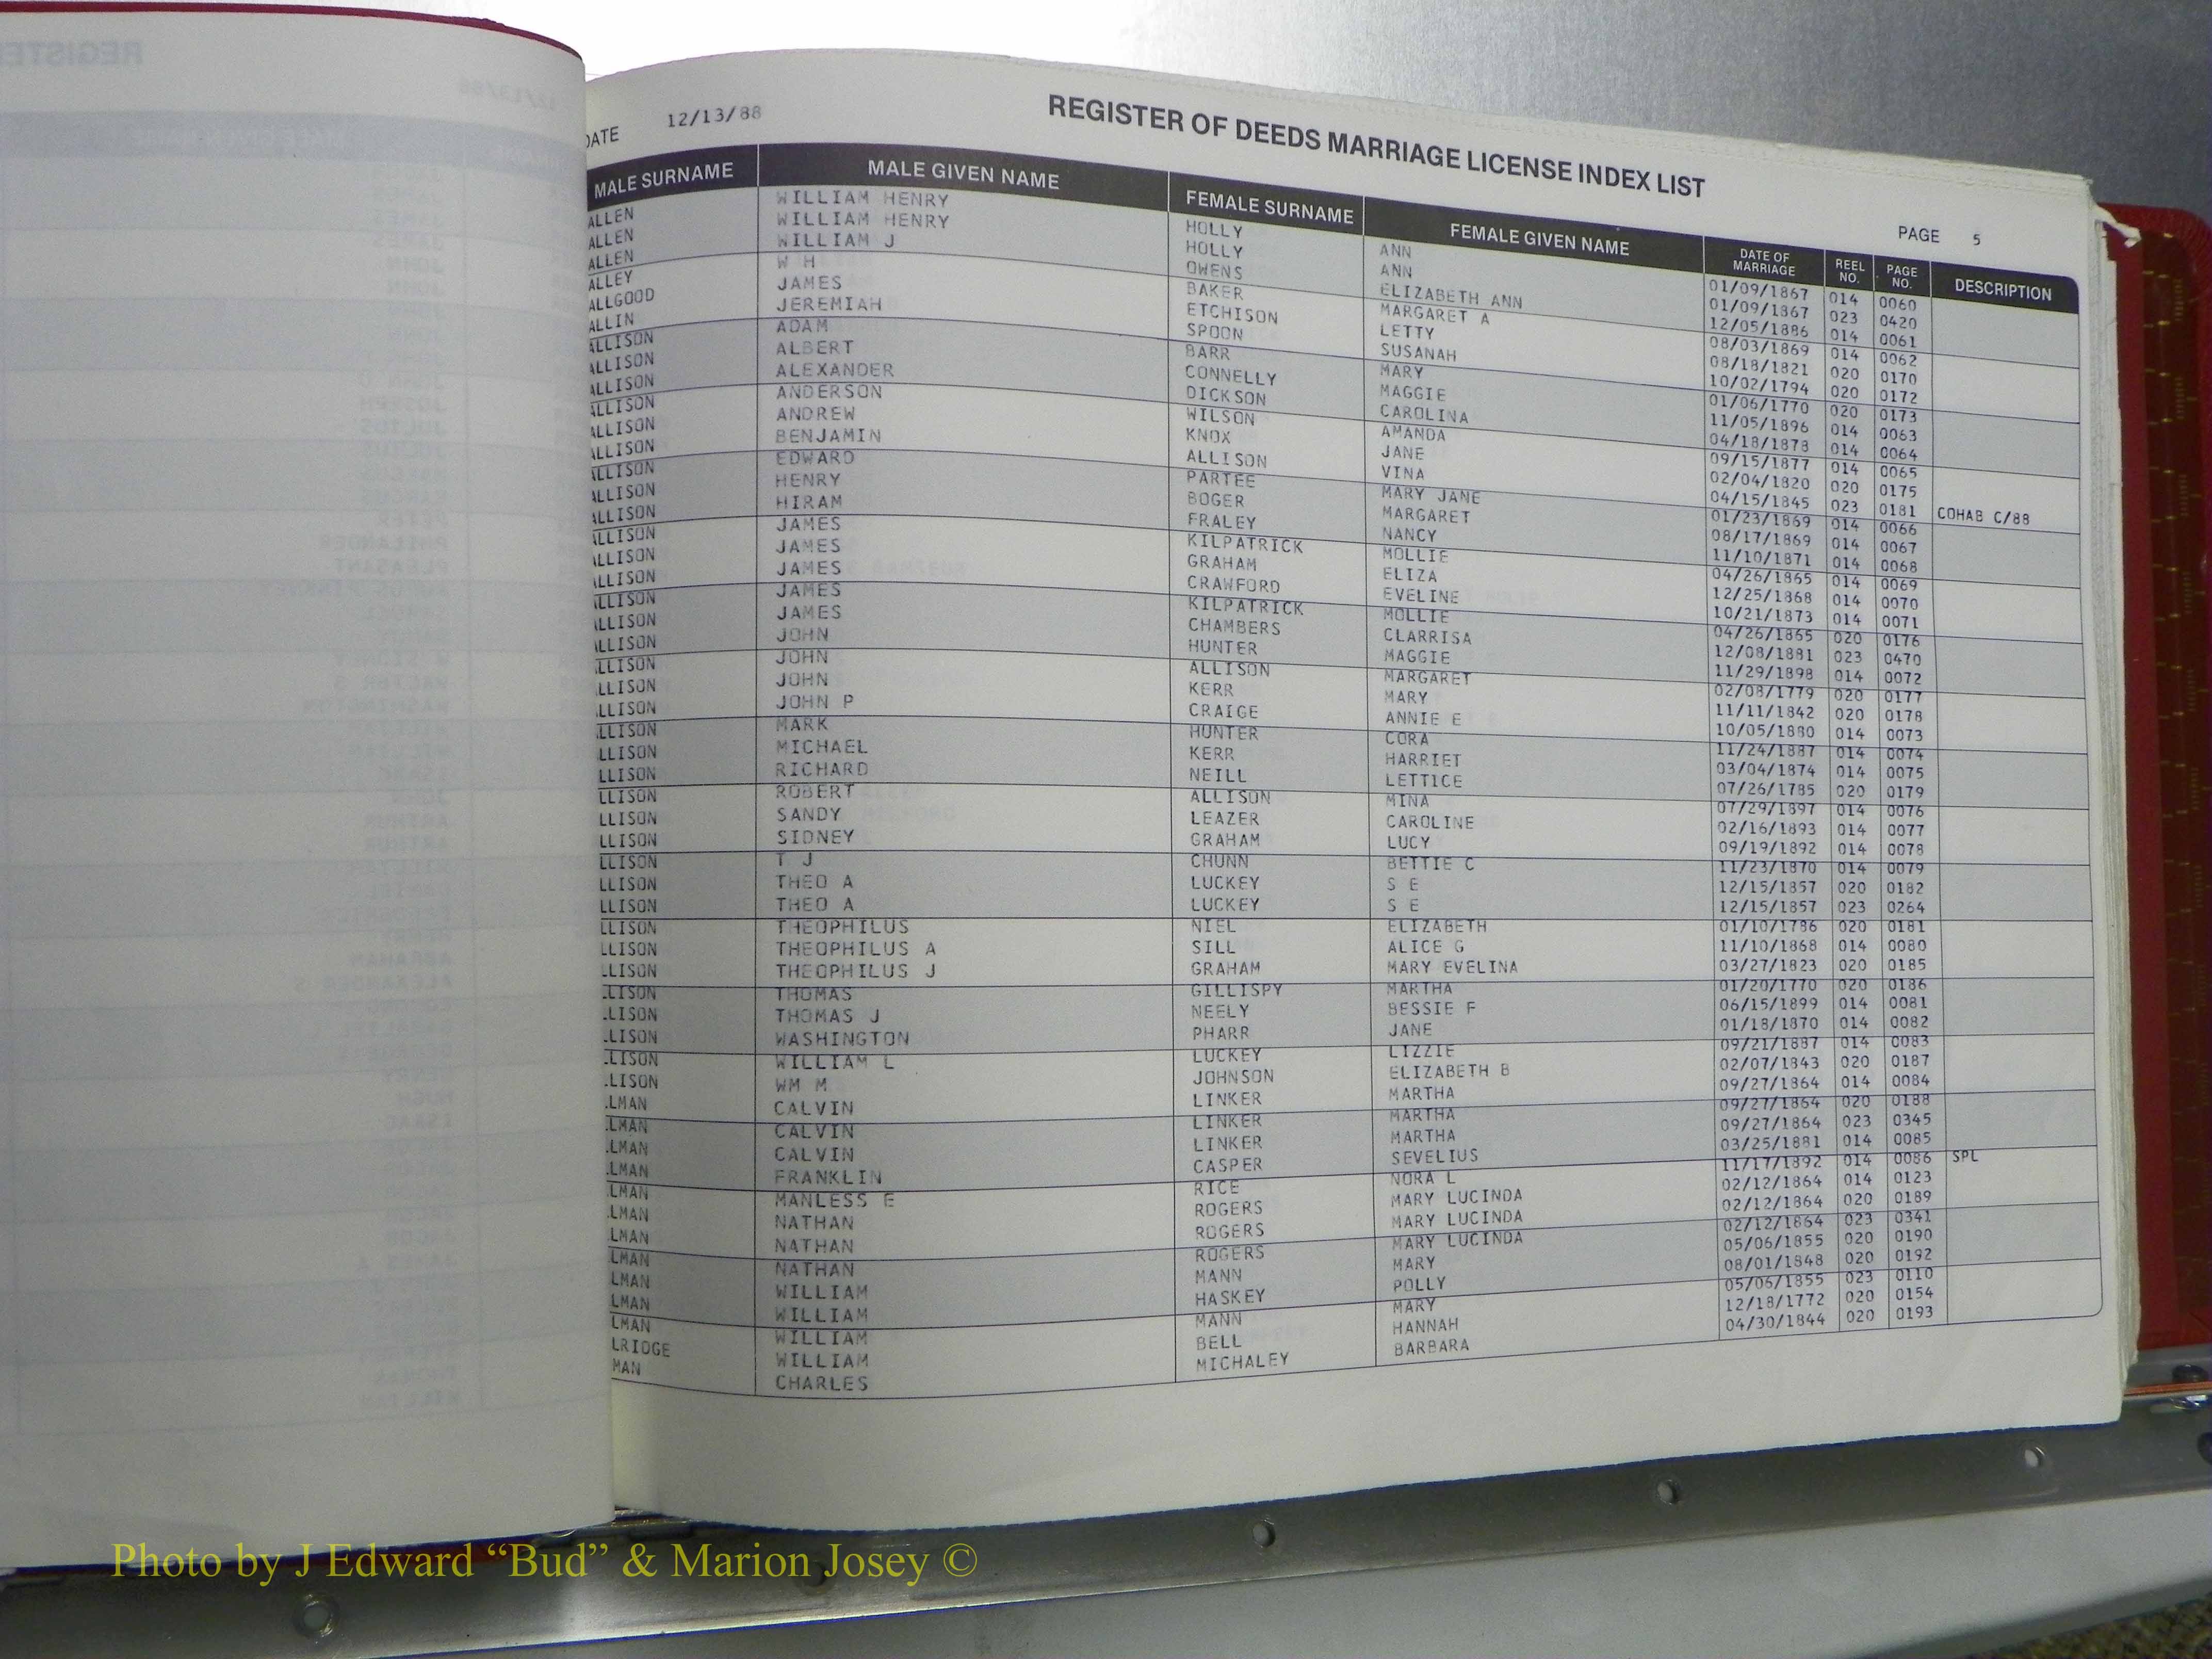 REGISTER
12/13/88
DATE 12/13/88 REGISTER OF DEEDS MARRIAGE LICENSE INDEX LIST PAGE 5
MALE SURNAME MALE GIVEN NAME FEMALE SURNAME FEMALE GIVEN NAME DATE OF MARRIAGE REEL NO. PAGE NO. DESCRIPTION
ALLEN WILLIAM HENRY HOLLY ANN 01/09/1867 014 0060
ALLEN WILLIAM HENRY HOLLY ANN 01/09/1867 023 0420
ALLEN WILLIAM J OWENS ELIZABETH ANN 12/05/1886 014 0061
ALLEY W H BAKER MARGARET A 08/03/1869 014 0062
ALLGOOD JAMES ETCHISON LETTY 08/18/1821 020 0170
ALLIN JEREMIAH SPOON SUSANAH 10/02/1794 020 0172
ALLISON ADAM BARR MARY 01/06/1770 020 0173
ALLISON ALBERT CONNELLY MAGGIE 11/05/1896 014 0063
ALLISON ALEXANDER DICKSON CAROLINA 04/18/1878 014 0064
ALLISON ANDERSON WILSON AMANDA 09/15/1877 014 0065
ALLISON ANDREW KNOX JANE 02/04/1820 020 0175
ALLISON BENJAMIN ALLISON VINA 04/15/1845 023 0181 COHAB C/88
ALLISON EDWARD PARTEE MARY JANE 01/23/1869 014 0066
ALLISON HENRY BOGER MARGARET 08/17/1869 014 0067
ALLISON HIRAM FRALEY NANCY 11/10/1871 014 0068
ALLISON JAMES KILPATRICK MOLLIE 04/26/1865 014 0069
ALLISON JAMES GRAHAM ELIZA 12/25/1868 014 0070
ALLISON JAMES CRAWFORD EVELINE 10/21/1873 014 0071
ALLISON JAMES KILPATRICK MOLLIE 04/26/1865 020 0176
ALLISON JAMES CHAMBERS CLARRISA 12/08/1881 023 0470
ALLISON JOHN HUNTER MAGGIE 11/29/1898 014 0072
LLISON JOHN ALLISON MARGARET 02/08/1779 020 0177
LLISON JOHN KERR MARY 11/11/1842 020 0178
LLISON JOHN P CRAIGE ANNIE E 10/05/1880 014 0073
LLISON MARK HUNTER CORA 11/24/1887 014 0074
LLISON MICHAEL KERR HARRIET 03/04/1874 014 0075
LLISON RICHARD NEILL LETTICE 07/26/1785 020 0179
LLISON ROBERT ALLISON MINA 07/29/1897 014 0076
LLISON SANDY LEAZER CAROLINE 02/16/1893 014 0077
LLISON SIDNEY GRAHAM LUCY 09/19/1892 014 0078
LLISON T J CHUNN BETTIE C 11/23/1870 014 0079
LLISON THEO A LUCKEY S E 12/15/1857 020 0182
LLISON THEO A LUCKEY S E 12/15/1857 023 0264
LLISON THEOPHILUS NIEL ELIZABETH 01/10/1786 020 0181
LLISON THEOPHILUS A SILL ALICE G 11/10/1868 014 0080
LLISON THEOPHILUS J GRAHAM MARY EVELINA 03/27/1823 020 0185
LLISON THOMAS GILLISPY MARTHA 01/20/1770 020 0186
LLISON THOMAS J NEELY BESSIE F 06/15/1899 014 0081
LLISON WASHINGTON PHARR JANE 01/18/1870 014 0082
LLISON WILLIAM L LUCKEY LIZZIE 09/21/1887 014 0083
LLISON WM M JOHNSON ELIZABETH B 02/07/1843 020 0187
LMAN CALVIN LINKER MARTHA 09/27/1864 014 0084
LMAN CALVIN LINKER MARTHA 09/27/1864 020 0188
LMAN CALVIN LINKER MARTHA 09/27/1864 023 0345
LMAN FRANKLIN CASPER SEVELIUS 03/25/1881 014 0085
LMAN MANLESS E RICE NORA L 11/17/1892 014 0086 SPL
LMAN NATHAN ROGERS MARY LUCINDA 02/12/1864 014 0123
LMAN NATHAN ROGERS MARY LUCINDA 02/12/1864 020 0189
LMAN NATHAN ROGERS MARY LUCINDA 02/12/1864 023 0341
LMAN WILLIAM MANN MARY 05/06/1855 020 0190
LMAN WILLIAM HASKEY POLLY 08/01/1848 020 0192
LMAN WILLIAM MANN MARY 05/06/1855 023 0110
LRIDGE WILLIAM BELL HANNAH 12/18/1772 020 0154
MAN CHARLES MICHALEY BARBARA 04/30/1844 020 0193
Photo by J Edward “Bud” & Marion Josey ©